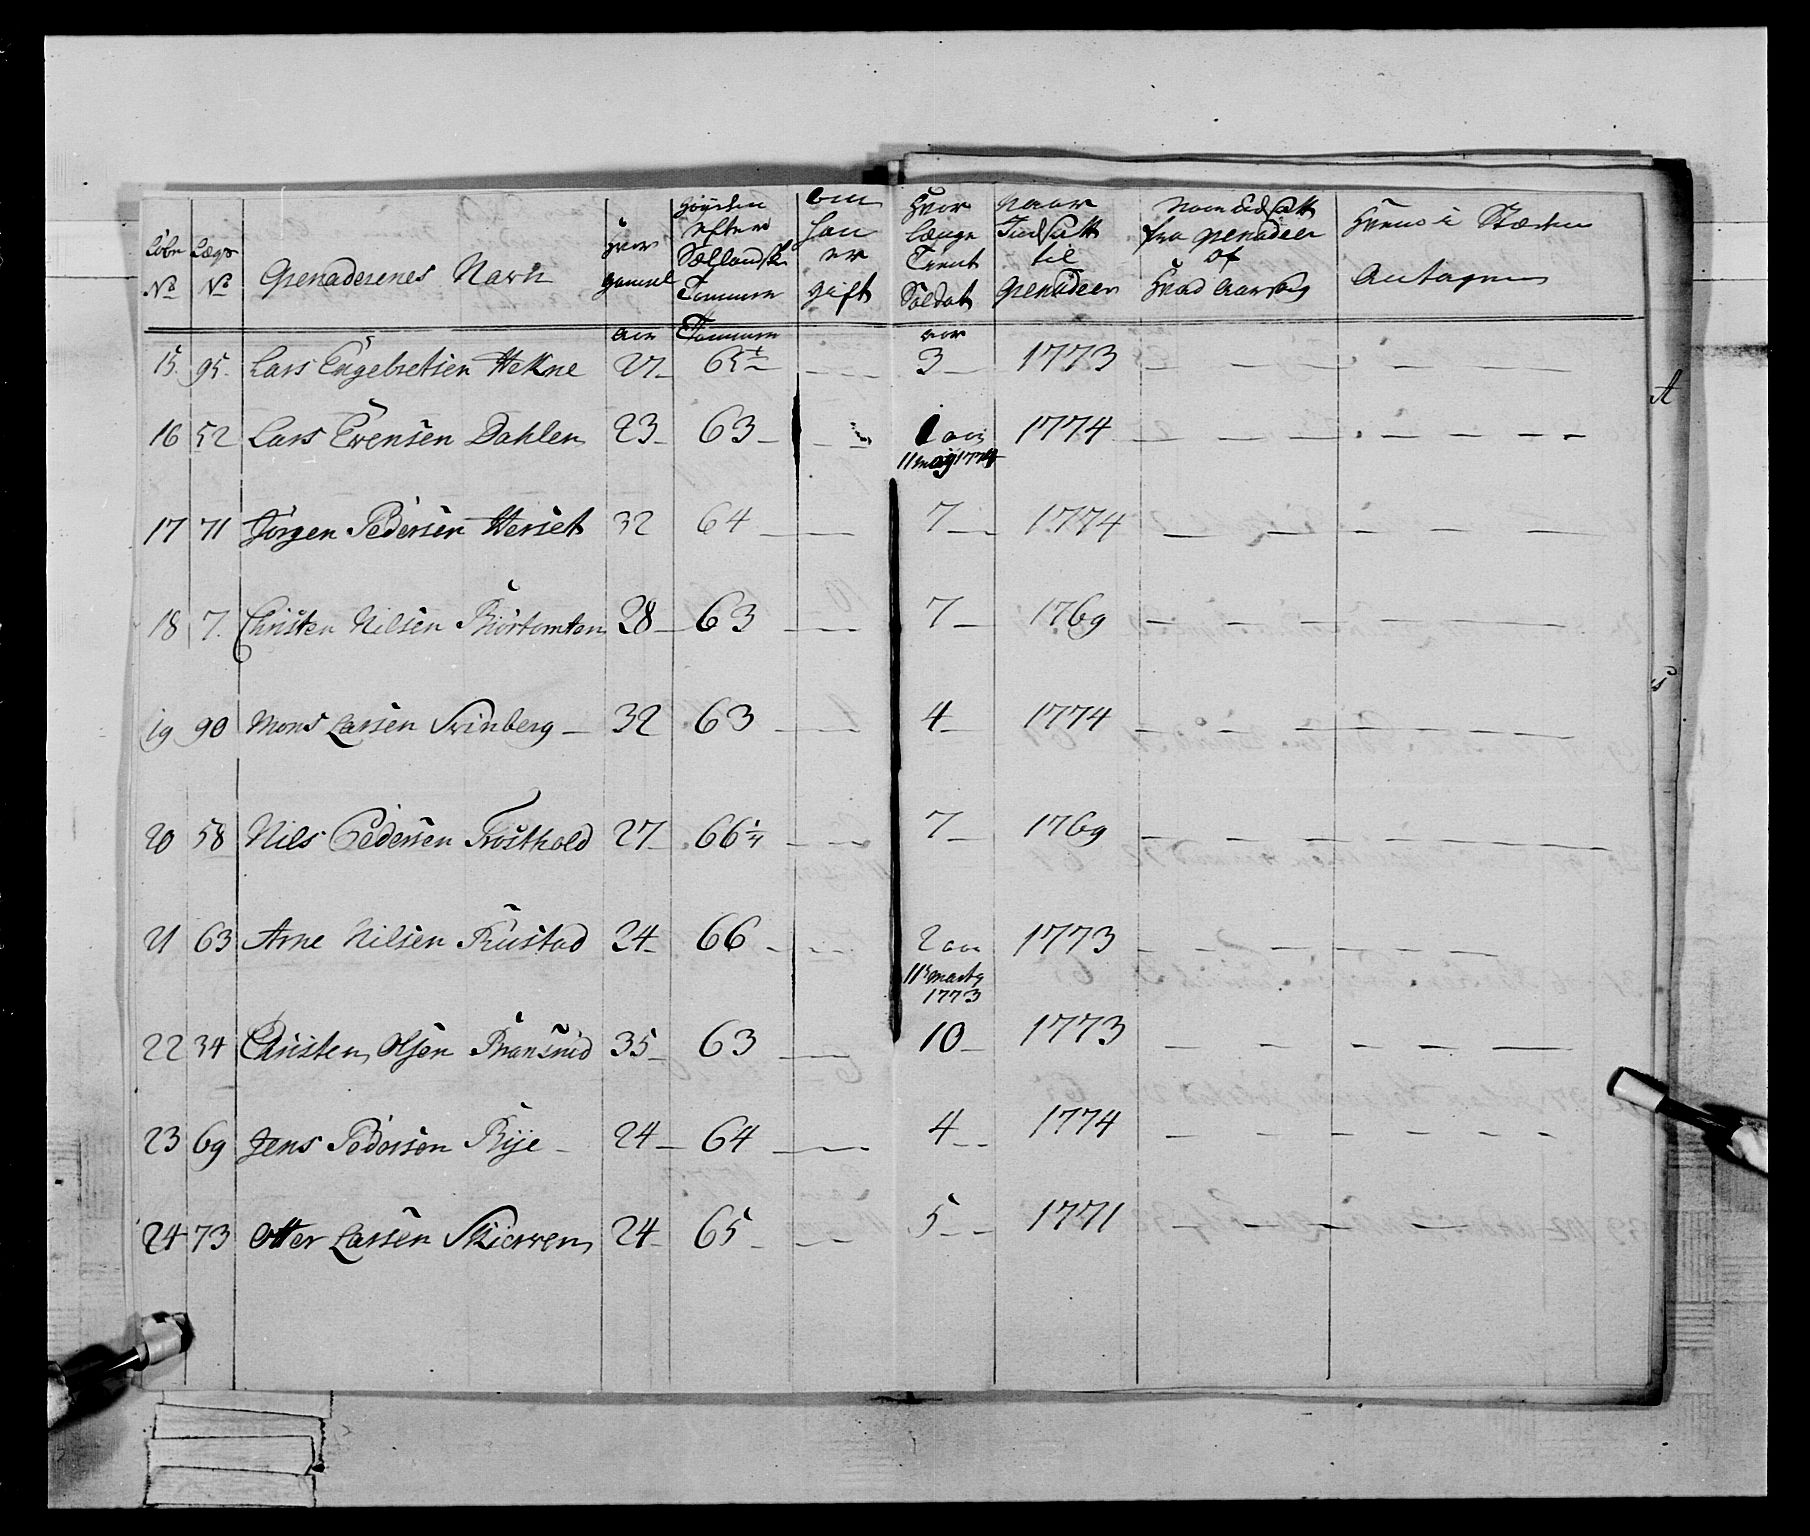 Løbe No Lægs No Grenaderenes Navn Hvor gamel Høyden efter Sællandsk Tommer om han er gift Hvor længe Tient Soldat naar Indsatt til grenadeer naar udsatt fra grenadeer og hvad aarsag Hvem i Stæden Antagen
aar Tommer aar
15. 95. Lars Engebretsen Hekne 27 65 3 1773
16 52 Lars Evensen Dahlen 23 63 1 aar 1774
11 maij 1774
17 71 Jørgen Pedersen Herset 32 64 7 1774
18 7. Christen Nilsen 28 63 7 1769
19 90 Mons Larsen Svinberg 32 63 4 1774
20 58 Nils Pedersen 27 66 1/4 7 1769
21 63 Arne Nilsen Rustad 24 66 2 aar 1773
11 marty
1773
22 34 Christen Olsen 35 63 10 1773
23 69 Jens Pedersen Rye 24 64 4 1774
24 73 Otter Larsen Skierven 24 65 5 1771